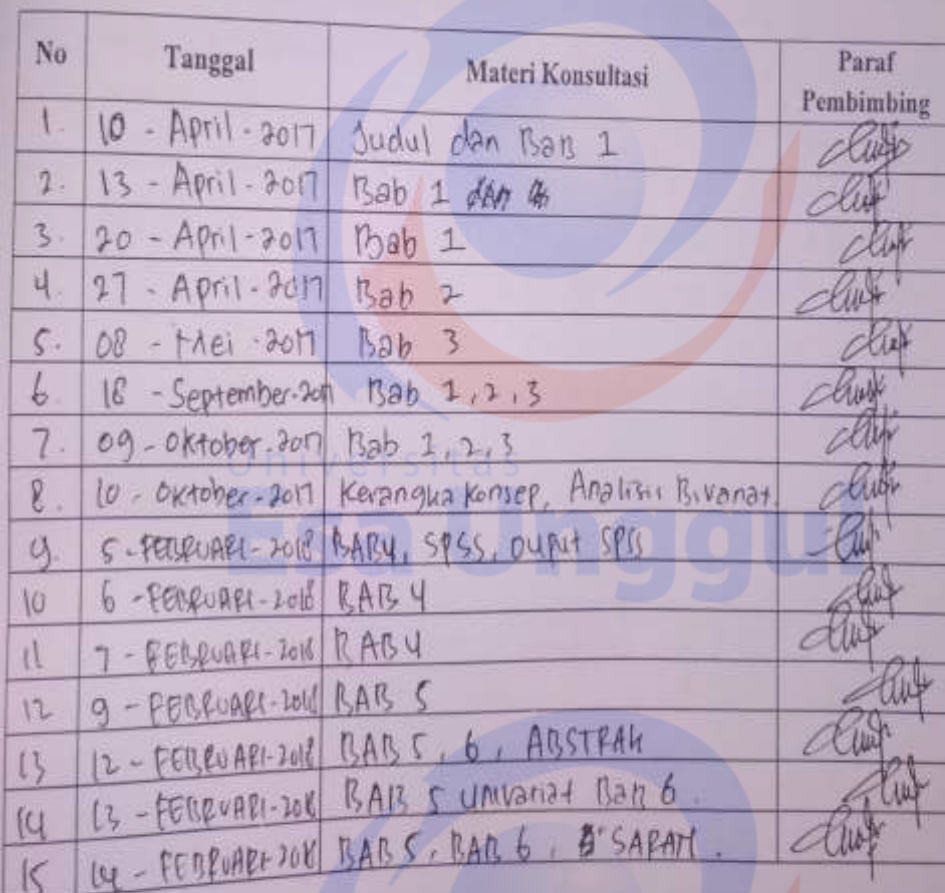 No Tanggal Materi Konsultasi Paraf Pembimbing
1. 10 - April - 2017 Judul dan Bab 1
2. 13 - April - 2017 Bab 1 dan
3. 20 - April - 2017 Bab 1
4. 27 - April - 2017 Bab 2
5. 08 - Mei - 2017 Bab 3
6. 18 - September - 2017 Bab 1, 2, 3
7. 09 - Oktober - 2017 Bab 1, 2, 3
Universitas
8. 10 - Oktober - 2017 Kerangka Konsep, Analisis Bivariat
Esa Unggul
9. 5 - FEBRUARI - 2018 BAB 4, SPSS, OUPUT SPSS
10 6 - FEBRUARI - 2018 BAB 4
11 7 - FEBRUARI - 2018 BAB 4
12 9 - FEBRUARI - 2018 BAB 5
13 12 - FEBRUARI - 2018 BAB 5, 6, ABSTRAK
14 13 - FEBRUARI - 2018 BAB 5 Univariat Bab 6.
15 14 - FEBRUARI - 2018 BAB 5, BAB 6, SARAN.